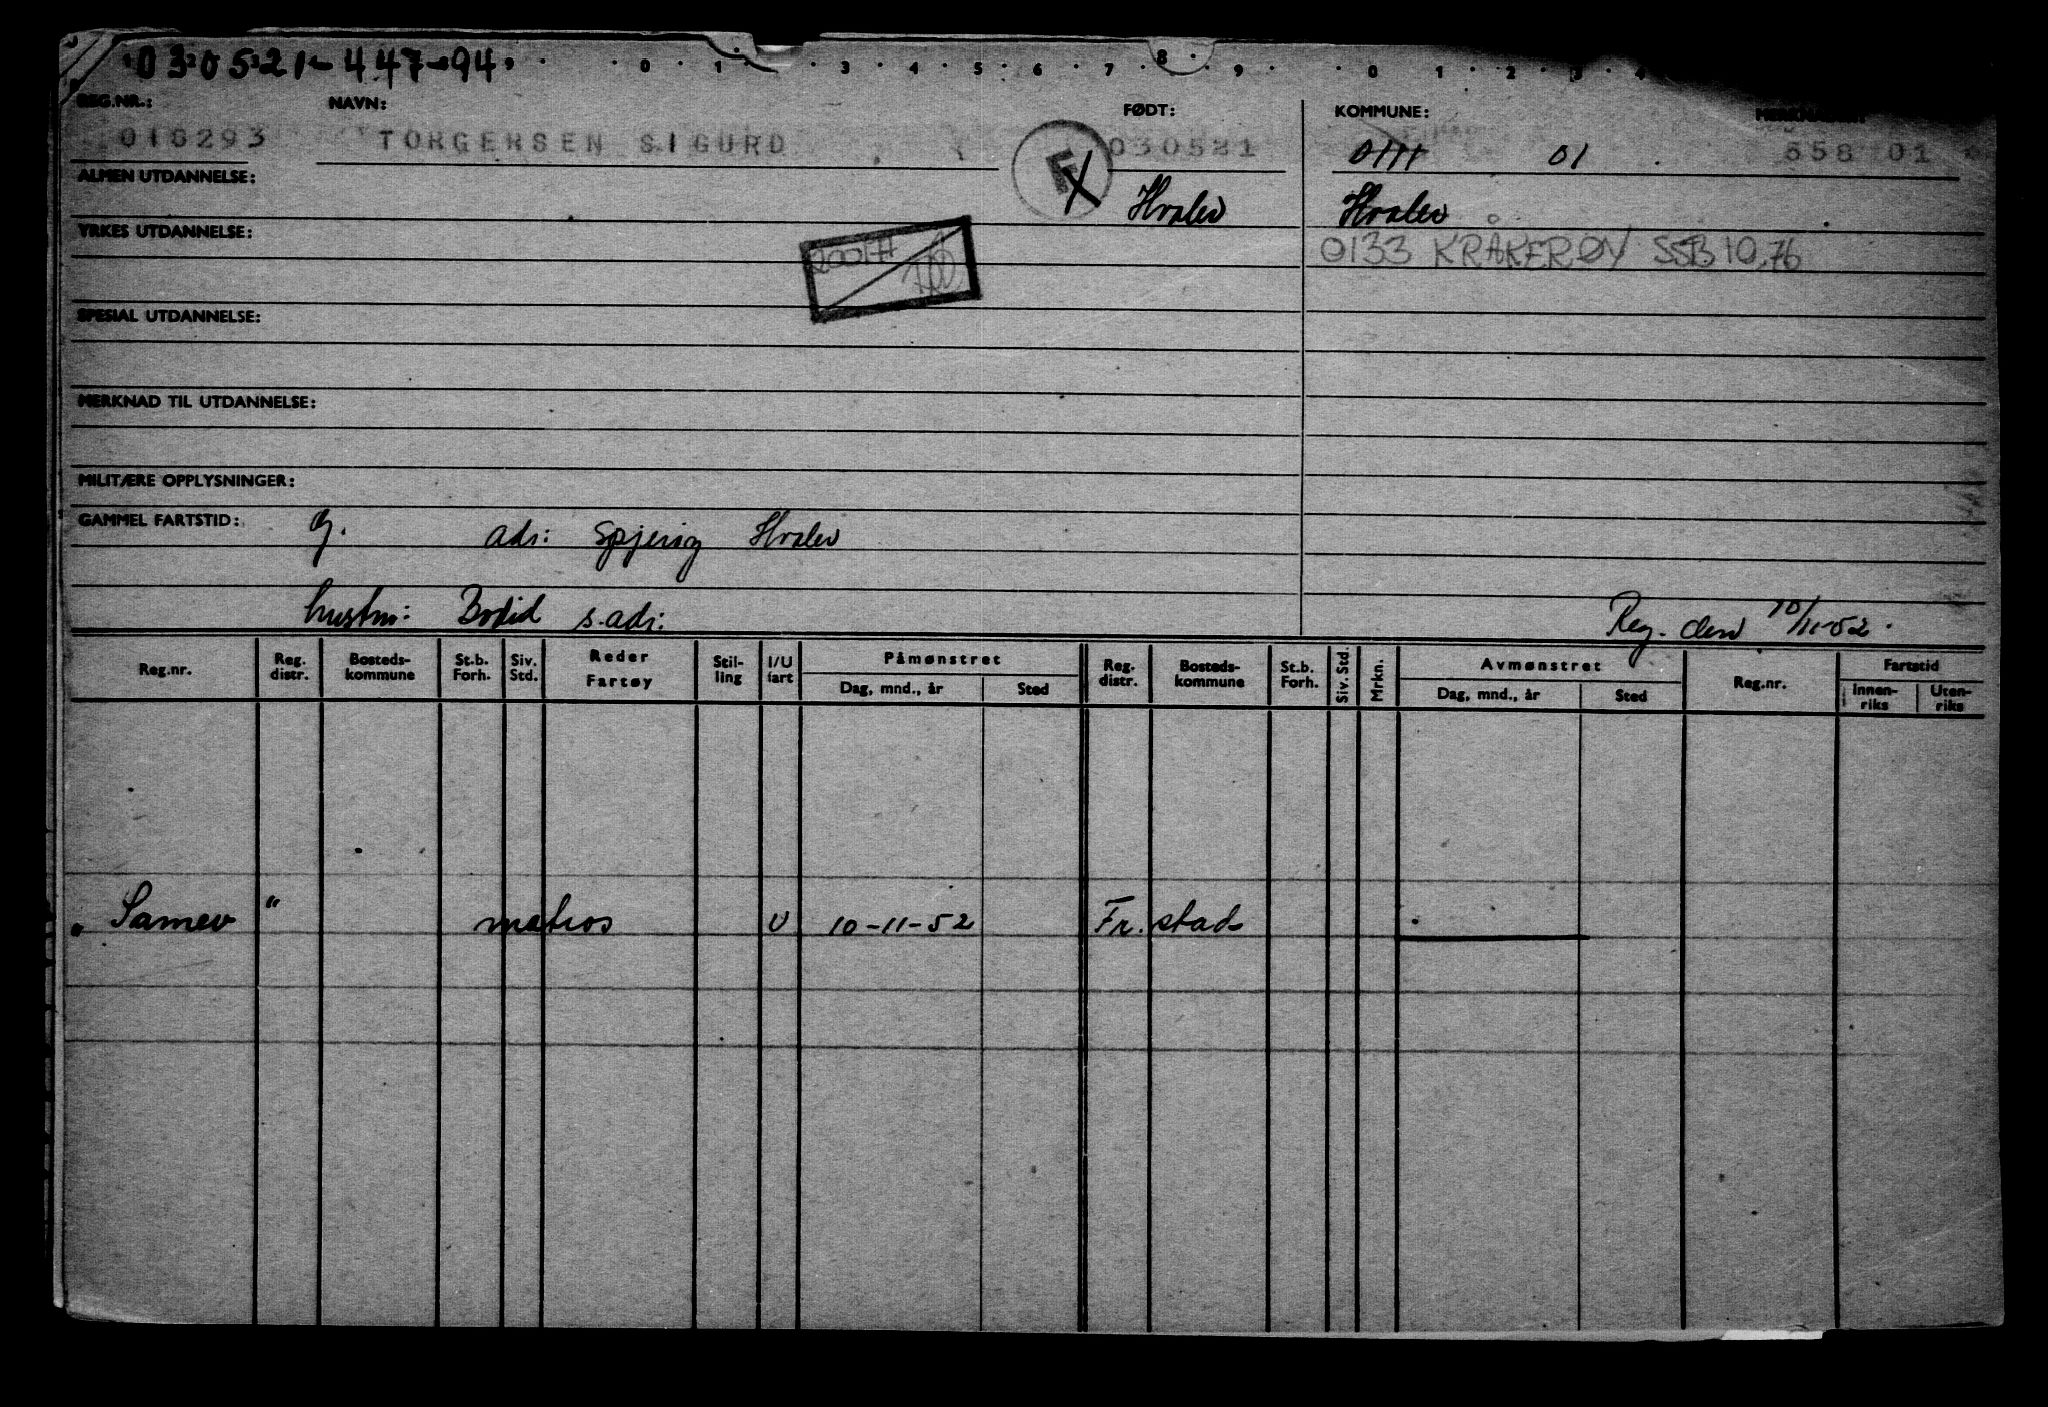 030521-447-94
0 1 3 4 5 6 7 8 9 0 1 2 3 4
REG.NR.: NAVN: FØDT: KOMMUNE:
016293 TORGERSEN SIGURD F 030521 0111 01 558 01
ALMEN UTDANNELSE:
Hvaler Hvaler
YRKES UTDANNELSE:
0133 KRÅKERØY SSB 10.76
SPESIAL UTDANNELSE:
MERKNAD TIL UTDANNELSE:
MILITÆRE OPPLYSNINGER:
GAMMEL FARTSTID: g. adr: Spjærøy Hvaler
hustru: Bodid s.adr: Reg. den 10/11-52.
Reg.nr. Reg. distr. Bosteds-kommune St.b. Forh. Siv. Std. Reder Fartøy Stil-ling I/U fart Påmønstret Dag, mnd., år Sted Reg. distr. Bosteds-kommune St.b. Forh. Siv. Std. Mrkn. Avmønstret Dag, mnd., år Sted Reg.nr. Fartstid Innen-riks Uten-riks
" Samev " matros U 10-11-52 Fr.stad